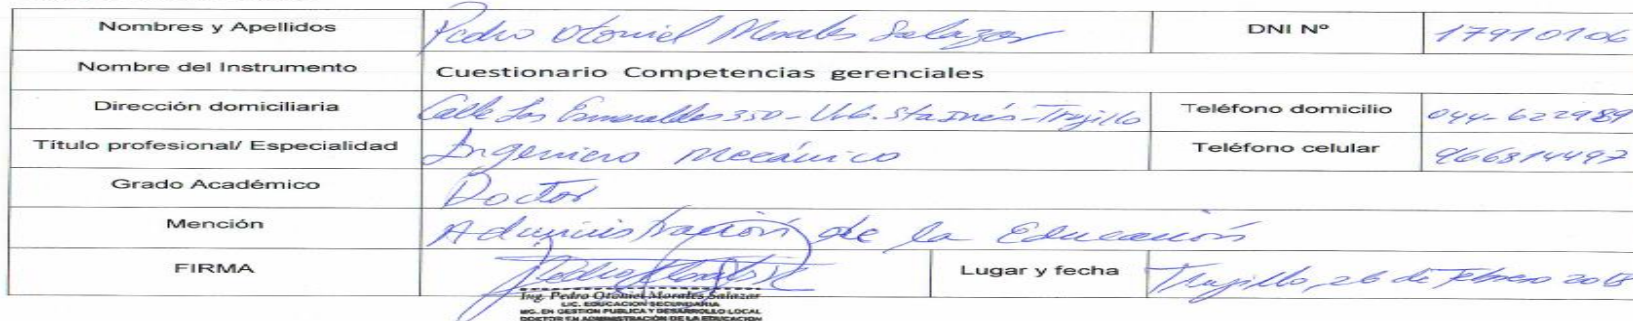 Nombres y Apellidos Pedro Otoniel Morales Salazar DNI Nº 17910106
Nombre del Instrumento Cuestionario Competencias gerenciales
Dirección domiciliaria Calle Las Esmeraldas 350 - Urb. Sta Inés - Trujillo Teléfono domicilio 044-622989
Título profesional/ Especialidad Ingeniero Mecánico Teléfono celular 966814497
Grado Académico Doctor
Mención Administración de la Educación
FIRMA Lugar y fecha Trujillo, 26 de Febrero 2018
Ing. Pedro Otoniel Morales Salazar
LIC. EDUCACION SECUNDARIA
MG. EN GESTION PUBLICA Y DESARROLLO LOCAL
DOCTOR EN ADMINISTRACIÓN DE LA EDUCACION